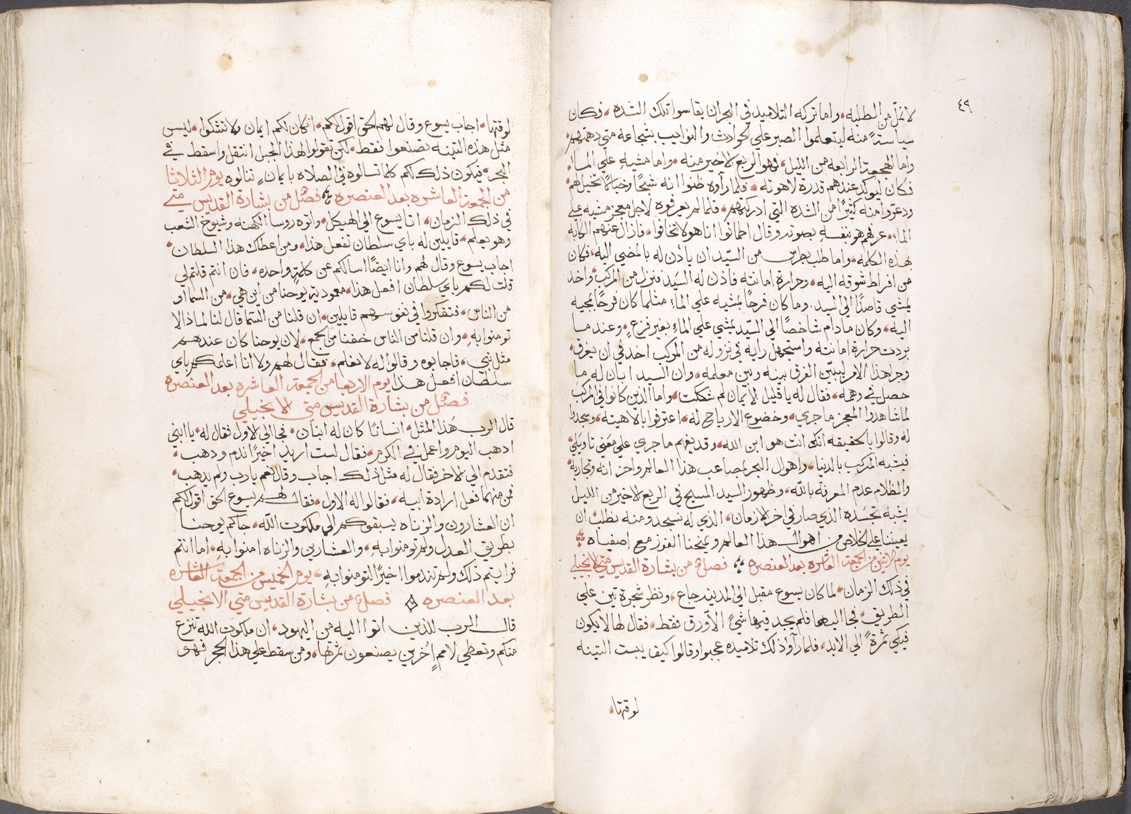 ٤٩
لا نملّ من الطلبه واما تركه التلاميذ في البحر ان يقاسوا تلك الشده وكان
سياسةً منه ليتعلموا الصبر علي الحوادث والنوايب بشجاعه متي دهمتهم
واما الهجعة الرابعه من الليل فهو الربع الاخير منه واما مشيه علي الماء
فكان ليوكد عندهم قدرة لاهوته فلما راوه ظنوا انه شبحًا وخيالًا تخيل لهم
وذعروا منه كثيرًا من الشده التي ادركتهم فلما لم يعرفوه لاجل معجز مشيه علي
الماء عرفهم هو نفسه بصوته وقال اطمانوا انا هو لا تخافوا فازال عنهم الكابه
بهذه الكلمه واما طلب بطرس من السيد ان ياذن له بالمضي اليه فكان
من افراط شوقه اليه وحرارة امانته فاذن له السيد فنزل من المركب واخذ
يمشي قاصدًا الي السيد وما كان فرحًا بمشيه علي الماء مثلما كان فرحًا بمجيه
اليه وكان مادام شاخصًا الي السيد يمشي علي الماء بغير فزع وعند ما
بردت حرارة امانته واستجهل رايه في نزوله من المركب اخذ في ان يغرق
وجر هذا الامر ليبين الفرق بينه وبين معلمه وان السيد ابان له ما
حصل في وهمه فقال له يا قليل الايمان لم شككت واما الذين كانوا في المركب
لما شاهدوا المعجز ماجري وخضوع الارياح له اعترفوا بالاهيته ومجدوا
له وقالوا بالحقيقه انك انت هو ابن الله وقد يفهم ماجري علي معني تاويلي
فيشبه المركب بالدنيا واهوال البحر بمصاعب هذا العالم واحزانه وتجاربه
والظلام عدم المعرفة بالله وظهور السيد المسيح في الربع الاخير من الليل
يشبه تجسده الذي صار في اخر الازمان الذي له نسجد ومنه نطلب ان
يعيننا علي الخلاص من اهوال هذا العالم ويمنحنا الفوز مع اصفياه
يوم الاثنين من الجمعة العاشره بعد العنصره فصل من بشارة القديس متي الانجيلي
في ذلك الزمان لما كان يسوع مقبل الي المدينه جاع ونظر شجرة تين علي
الطريق فجا اليها فلم يجد فيها شيءً الا ورق فقط فقال لها لا يكون
فيكي ثمرةً الي الابد فلما راو ذلك تلاميذه عجبوا وقالوا كيف يبست التينه
لوقتها
لوقتها اجاب يسوع وقال لهم الحق اقول لكم ان كان لكم ايمان ولا تشكوا ليس
مثل هذه التينه تصنعوا فقط لكن تقولوا لهذا الجبل انتقل واسقط في
البحر فيكون ذلك لكم كلما تسالوه في الصلاه بايمانٍ تنالوه يوم الثلاثا
من الجمعة العاشره بعد العنصره فصل من بشارة القديس متي
في ذلك الزمان اتا يسوع الي الهيكل واتوه روسا الكهنه وشيوخ الشعب
وهو يعلم قايلين له باي سلطان تفعل هذا ومن اعطاك هذا السلطان
اجاب يسوع وقال لهم وانا ايضًا اسالكم عن كلمةٍ واحده فان انتم قلتم لي
قلت لكم باي سلطان افعل هذا معمودية يوحنا من اين هي من السما او
من الناس ففتكروا في نفوسهم قايلين ان قلنا من السما قال لنا لماذا لا
تومنوا به وان قلنا من الناس خفنا من الجمع لان يوحنا كان عندهم
مثل نبي فاجابوه وقالوا له لا نعلم فقال لهم ولا انا اعلمكم باي
سلطان افعل هذا يوم الاربعا من الجمعة العاشره بعد العنصره
فصل من بشارة القديس متي الانجيلي
قال الرب هذا المثل انسانًا كان له ابنان فجا الي الاول فقال له يا ابني
اذهب اليوم واعمل في الكرم فقال لست اريد اخيرًا ندم وذهب
فتقدم الي الاخر فقال له مثل ذلك اجاب وقال نعم يا رب ولم يذهب
فمن منهما فعل ارادة ابيه فقالوا له الاول فقال لهم يسوع الحق اقول لكم
ان العشارون والزناه يسبقوكم الي ملكوت الله جاكم يوحنا
بطريق العدل ولم تومنوا به والعشارين والزناه امنوا به اما انتم
فرايتم ذلك ولم تندموا اخيرًا لتومنوا به يوم الخميس من الجمعة العاشره
بعد العنصره فصل من بشارة القديس متي الانجيلي
قال الرب للذين اتوا اليه من اليهود ان ملكوت الله تنزع
منكم وتعطي لاممٍ اخرين يصنعون ثمرتها ومن سقط علي هذا الحجر فهو